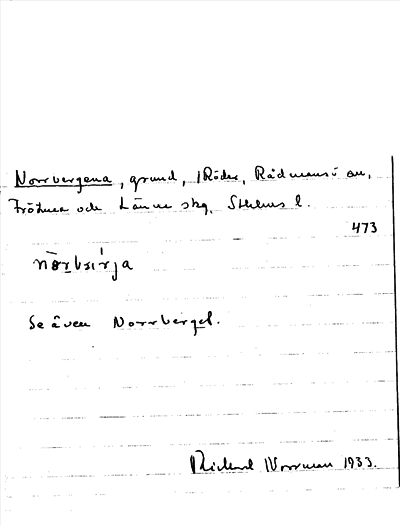 Norrbergena, grund, i Röder, Rådmansö sn,
Frötuna och Länna skg, Sthlms l.
473
Se även Norrberget.
Rickard Norrman 1933.